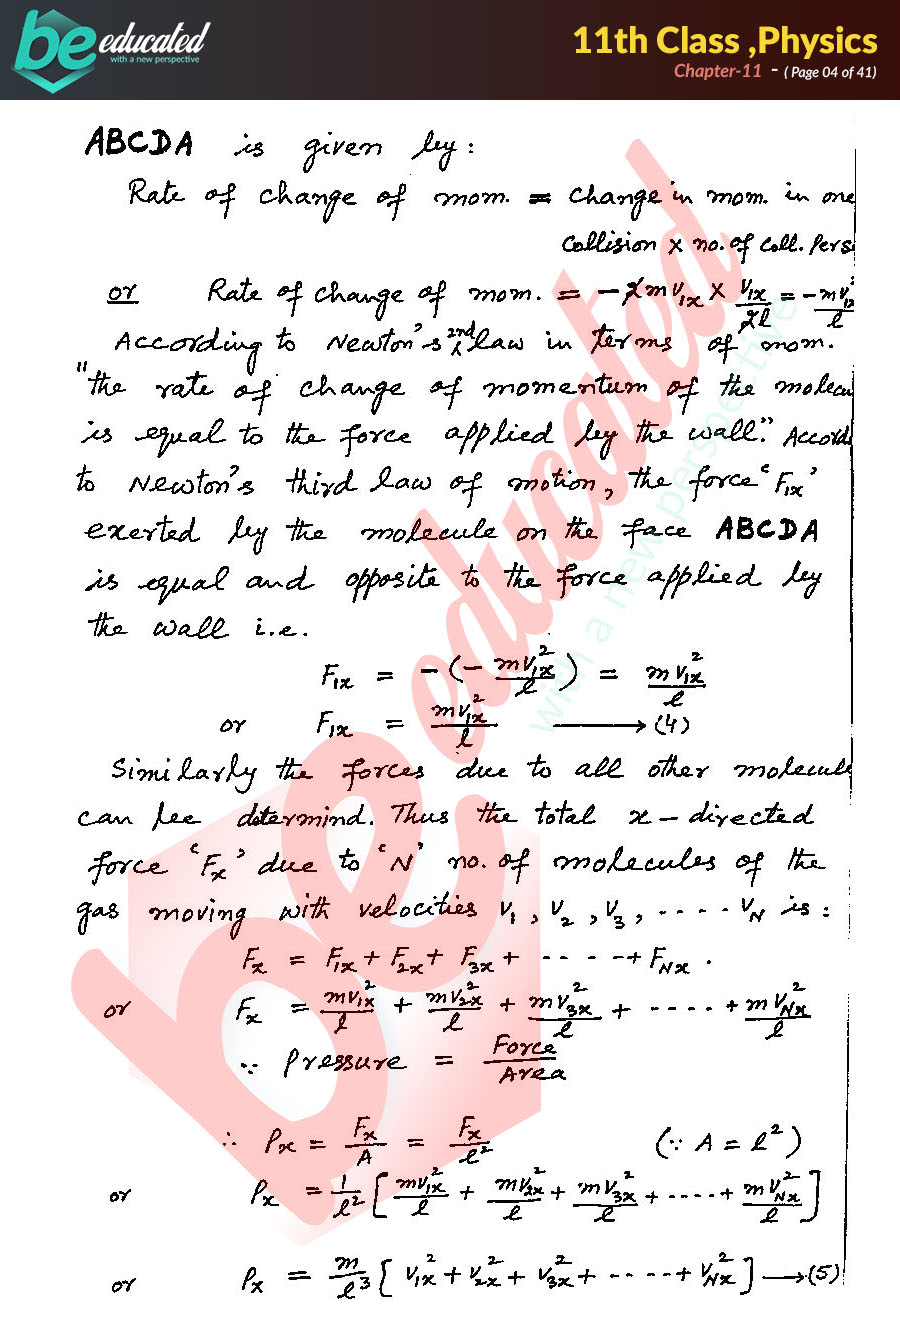 be educated
with a new perspective
11th Class ,Physics
Chapter-11 - ( Page 04 of 41)
ABCDA is given by :
Rate of change of mom. = Change in mom. in one
Collision × no. of coll. Pers
or Rate of change of mom. = -2mV₁ₓ × V₁ₓ/2l = -mV₁ₓ²/l
According to Newton's 2nd law in terms of mom.
"the rate of change of momentum of the molecu
is equal to the force applied by the wall". Accord
to Newton's third law of motion, the force 'F₁ₓ'
exerted by the molecule on the face ABCDA
is equal and opposite to the force applied by
the wall i.e.
F₁ₓ = -(- mV₁ₓ²/l) = mV₁ₓ²/l
or F₁ₓ = mV₁ₓ²/l ⟶ (4)
Similarly the forces due to all other molecule
can be determind. Thus the total x-directed
force 'Fₓ' due to 'N' no. of molecules of the
gas moving with velocities V₁, V₂, V₃, ---- V_N is :
Fₓ = F₁ₓ + F₂ₓ + F₃ₓ + ---- + F_Nx .
or Fₓ = mV₁ₓ²/l + mV₂ₓ²/l + mV₃ₓ²/l + ---- + mV_Nx²/l
∵ Pressure = Force/Area
∴ Pₓ = Fₓ/A = Fₓ/l² (∵ A = l²)
or Pₓ = 1/l² [mV₁ₓ²/l + mV₂ₓ²/l + mV₃ₓ²/l + ---- + mV_Nx²/l]
or Pₓ = m/l³ [V₁ₓ² + V₂ₓ² + V₃ₓ² + ---- + V_Nx²] ⟶ (5)
be educated
with a new perspective